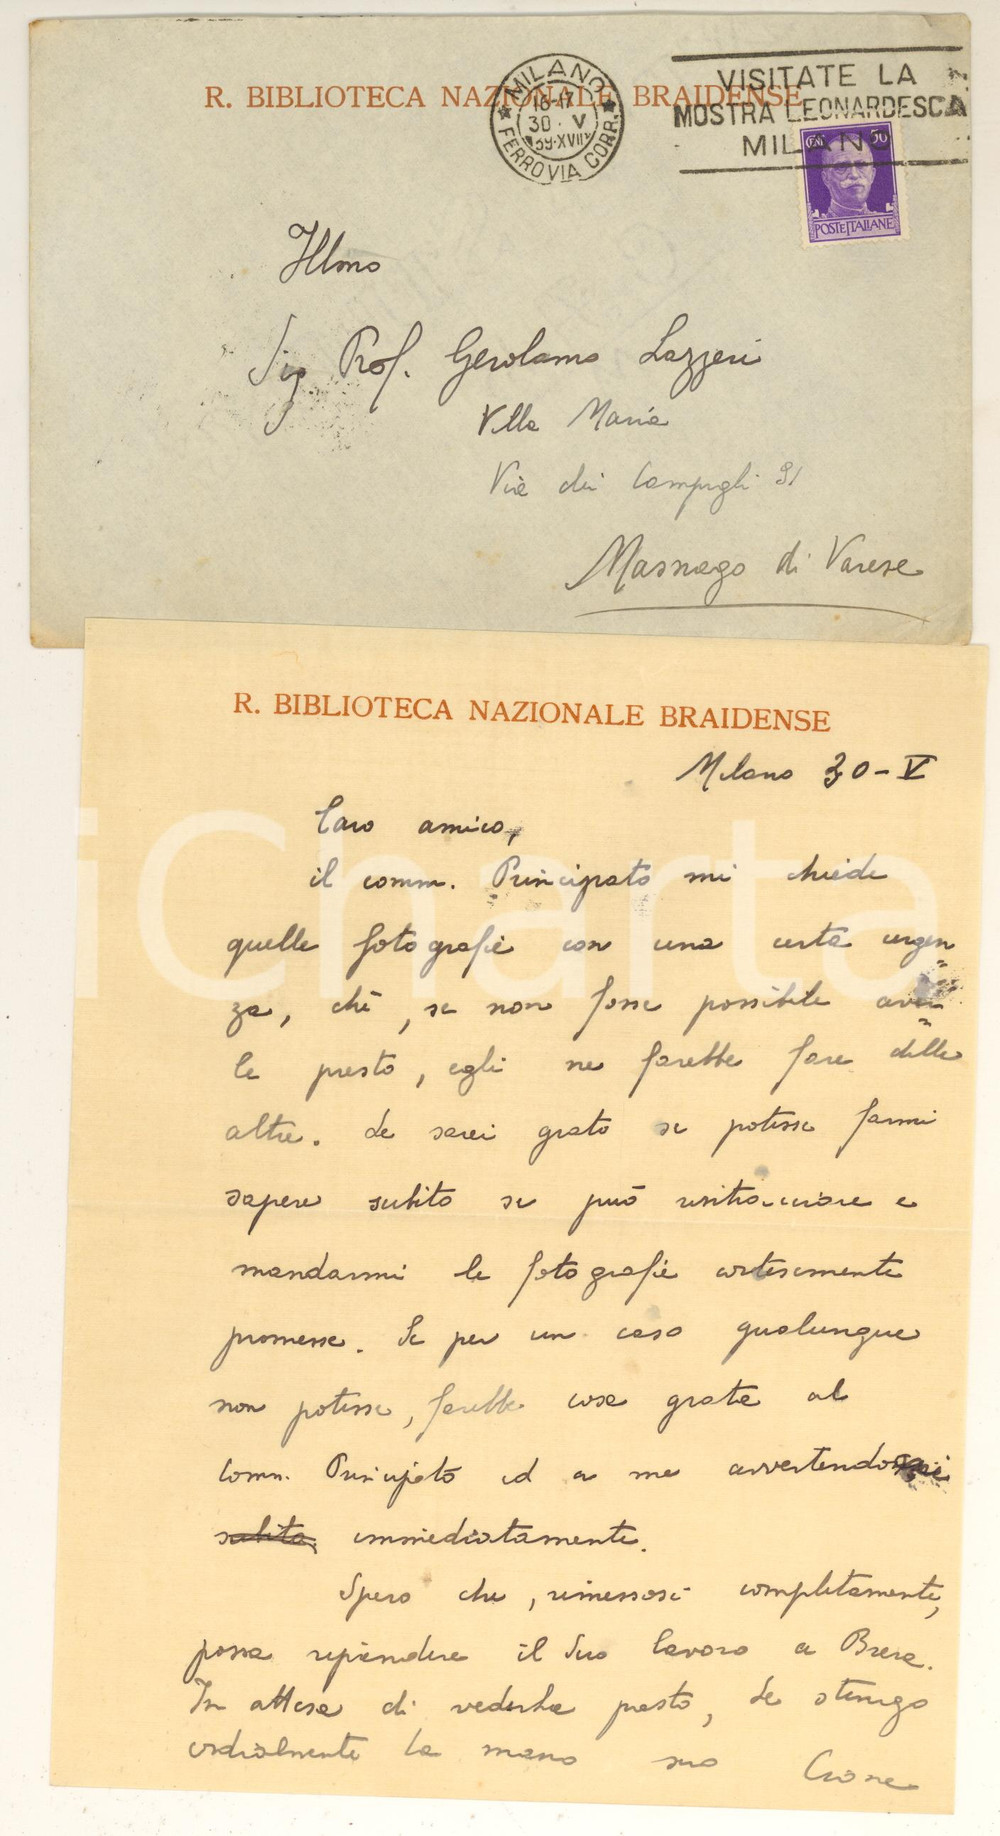 R. BIBLIOTECA NAZIONALE BRAIDENSE
MILANO
16-17
30 · V
39·XVII
FERROVIA CORR.
VISITATE LA
MOSTRA LEONARDESCA
MILANO
CENT 50
POSTE ITALIANE
Illmo
Sig Prof. Gerolamo Lazzeri
Villa Maria
Via dei Campigli 31
Masnago di Varese
R. BIBLIOTECA NAZIONALE BRAIDENSE
Milano 30-V
Caro amico,
il comm. Principato mi chiede
quelle fotografie con una certa urgen
za, chè, se non fosse possibile aver
le presto, egli ne farebbe fare delle
altre. Le sarei grato se potesse farmi
sapere subito se può rintracciare e
mandarmi le fotografie cortesemente
promesse. Se per un caso qualunque
non potesse, farebbe cosa grata al
Comm. Principato ed a me avvertendo
subito immediatamente.
Spero che, rimessosi completamente,
possa riprendere il Suo lavoro a Brera.
In attesa di vederLa presto, Le stringo
cordialmente la mano suo
iCharta